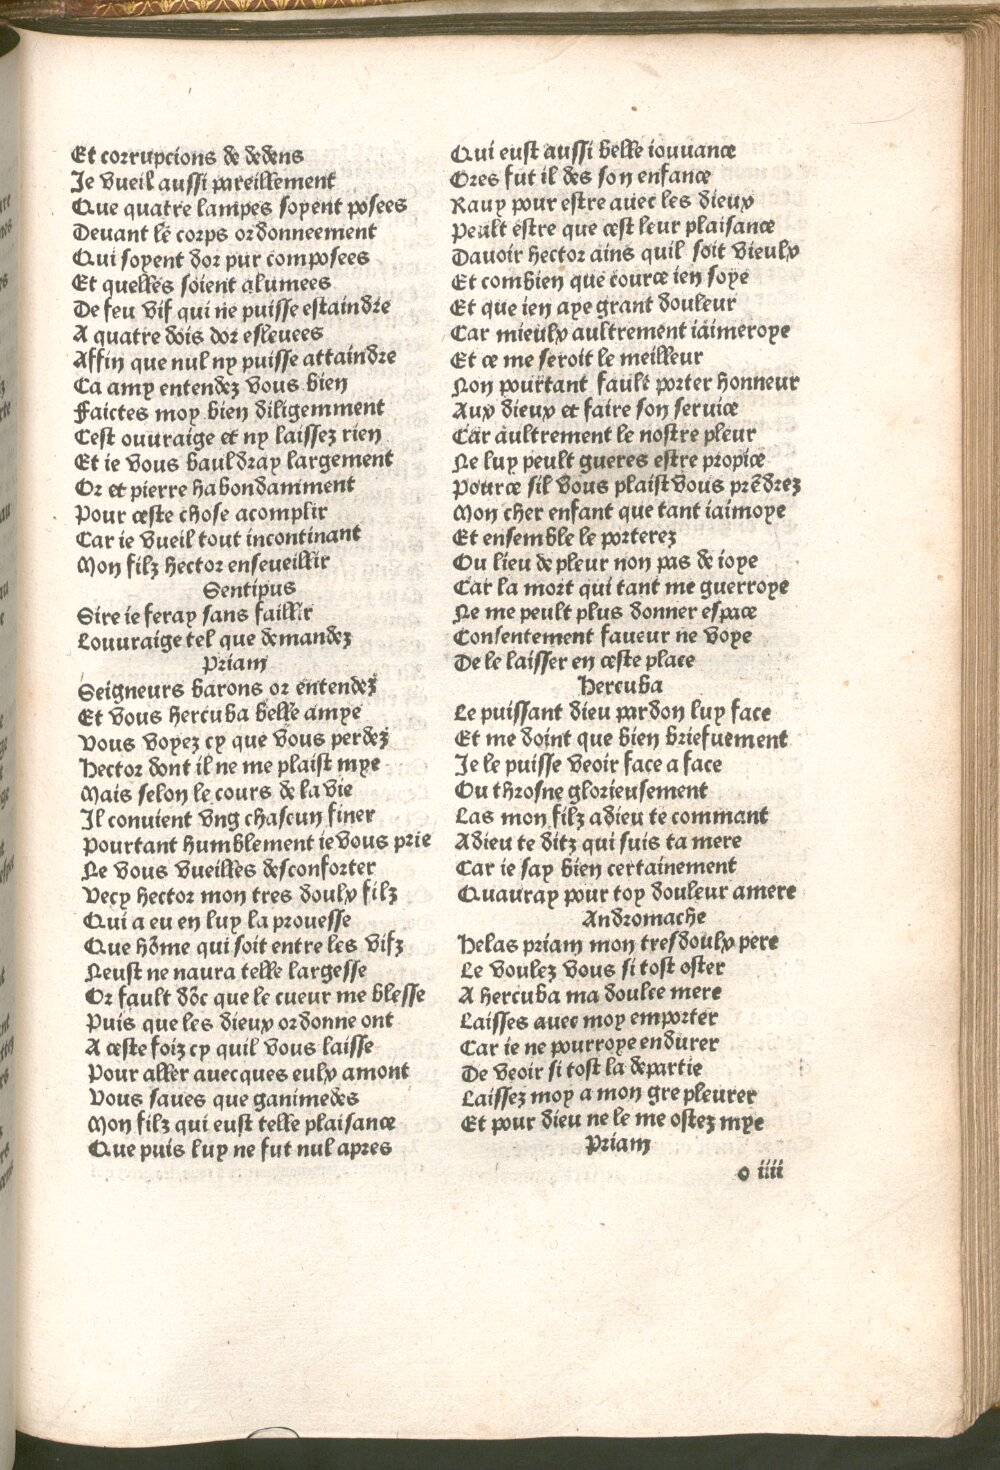 Et corrupcions de dedens
Je vueil aussi pareillement
Que quatre lampes soyent posees
Devant le corps ordonneement
Qui soyent dor pur composees
Et quelles soient alumees
De feu vif qui ne puisse estaindre
A quatre dois dor esleuees
Affin que nul ny puisse attaindre
Ca amy entendez vous bien
Faictes moy bien diligemment
Cest ouuraige et ny laissez rien
Et ie vous bauldray largement
Or et pierre habondamment
Pour ceste chose acomplir
Car ie vueil tout incontinant
Mon filz hector enseuellir
Sentipus
Sire ie feray sans faillir
Louuraige tel que demandez
Priam
Seigneurs barons or entendez
Et vous hercuba belle amye
Vous voyez cy que vous perdez
Hector dont il ne me plaist mye
Mais selon le cours de la vie
Il conuient vng chascun finer
Pourtant humblement ie vous prie
Ne vous vueilles desconforter
Vecy hector mon tres doulx filz
Qui a eu en luy la prouesse
Que hõme qui soit entre les vifz
Neust ne naura telle largesse
Or fault dõc que le cueur me blesse
Puis que les dieux ordonne ont
A ceste foiz cy quil vous laisse
Pour aller auecques eulx amont
Vous saues que ganimedes
Mon filz qui eust telle plaisance
Que puis luy ne fut nul apres
Qui eust aussi belle iouuance
Ores fut il des son enfance
Rauy pour estre auec les dieux
Peult estre que cest leur plaisance
Dauoir hector ains quil soit vieulx
Et combien que cource ien soye
Et que ien aye grant douleur
Car mieulx aultrement iaimeroye
Et ce me seroit le meilleur
Non pourtant fault porter honneur
Aux dieux et faire son seruice
Car aultrement le nostre pleur
Ne luy peult gueres estre propice
Pource sil vous plaist vous prẽdrez
Mon cher enfant que tant iaimoye
Et ensemble le porterez
Ou lieu de pleur non pas de ioye
Car la mort qui tant me guerroye
Ne me peult plus donner espace
Consentement faueur ne voye
De le laisser en ceste place
Hercuba
Le puissant dieu pardon luy face
Et me doint que bien briefuement
Je le puisse veoir face a face
Ou throsne glorieusement
Las mon filz adieu te commant
Adieu te ditz qui suis ta mere
Car ie say bien certainement
Quauray pour toy douleur amere
Andromache
Helas priam mon tresdoulx pere
Le voulez vous si tost oster
A hercuba ma doulce mere
Laisses auec moy emporter
Car ie ne pourroye endurer
De veoir si tost la departie
Laissez moy a mon gre pleurer
Et pour dieu ne le me ostez mye
Priam
o iiii